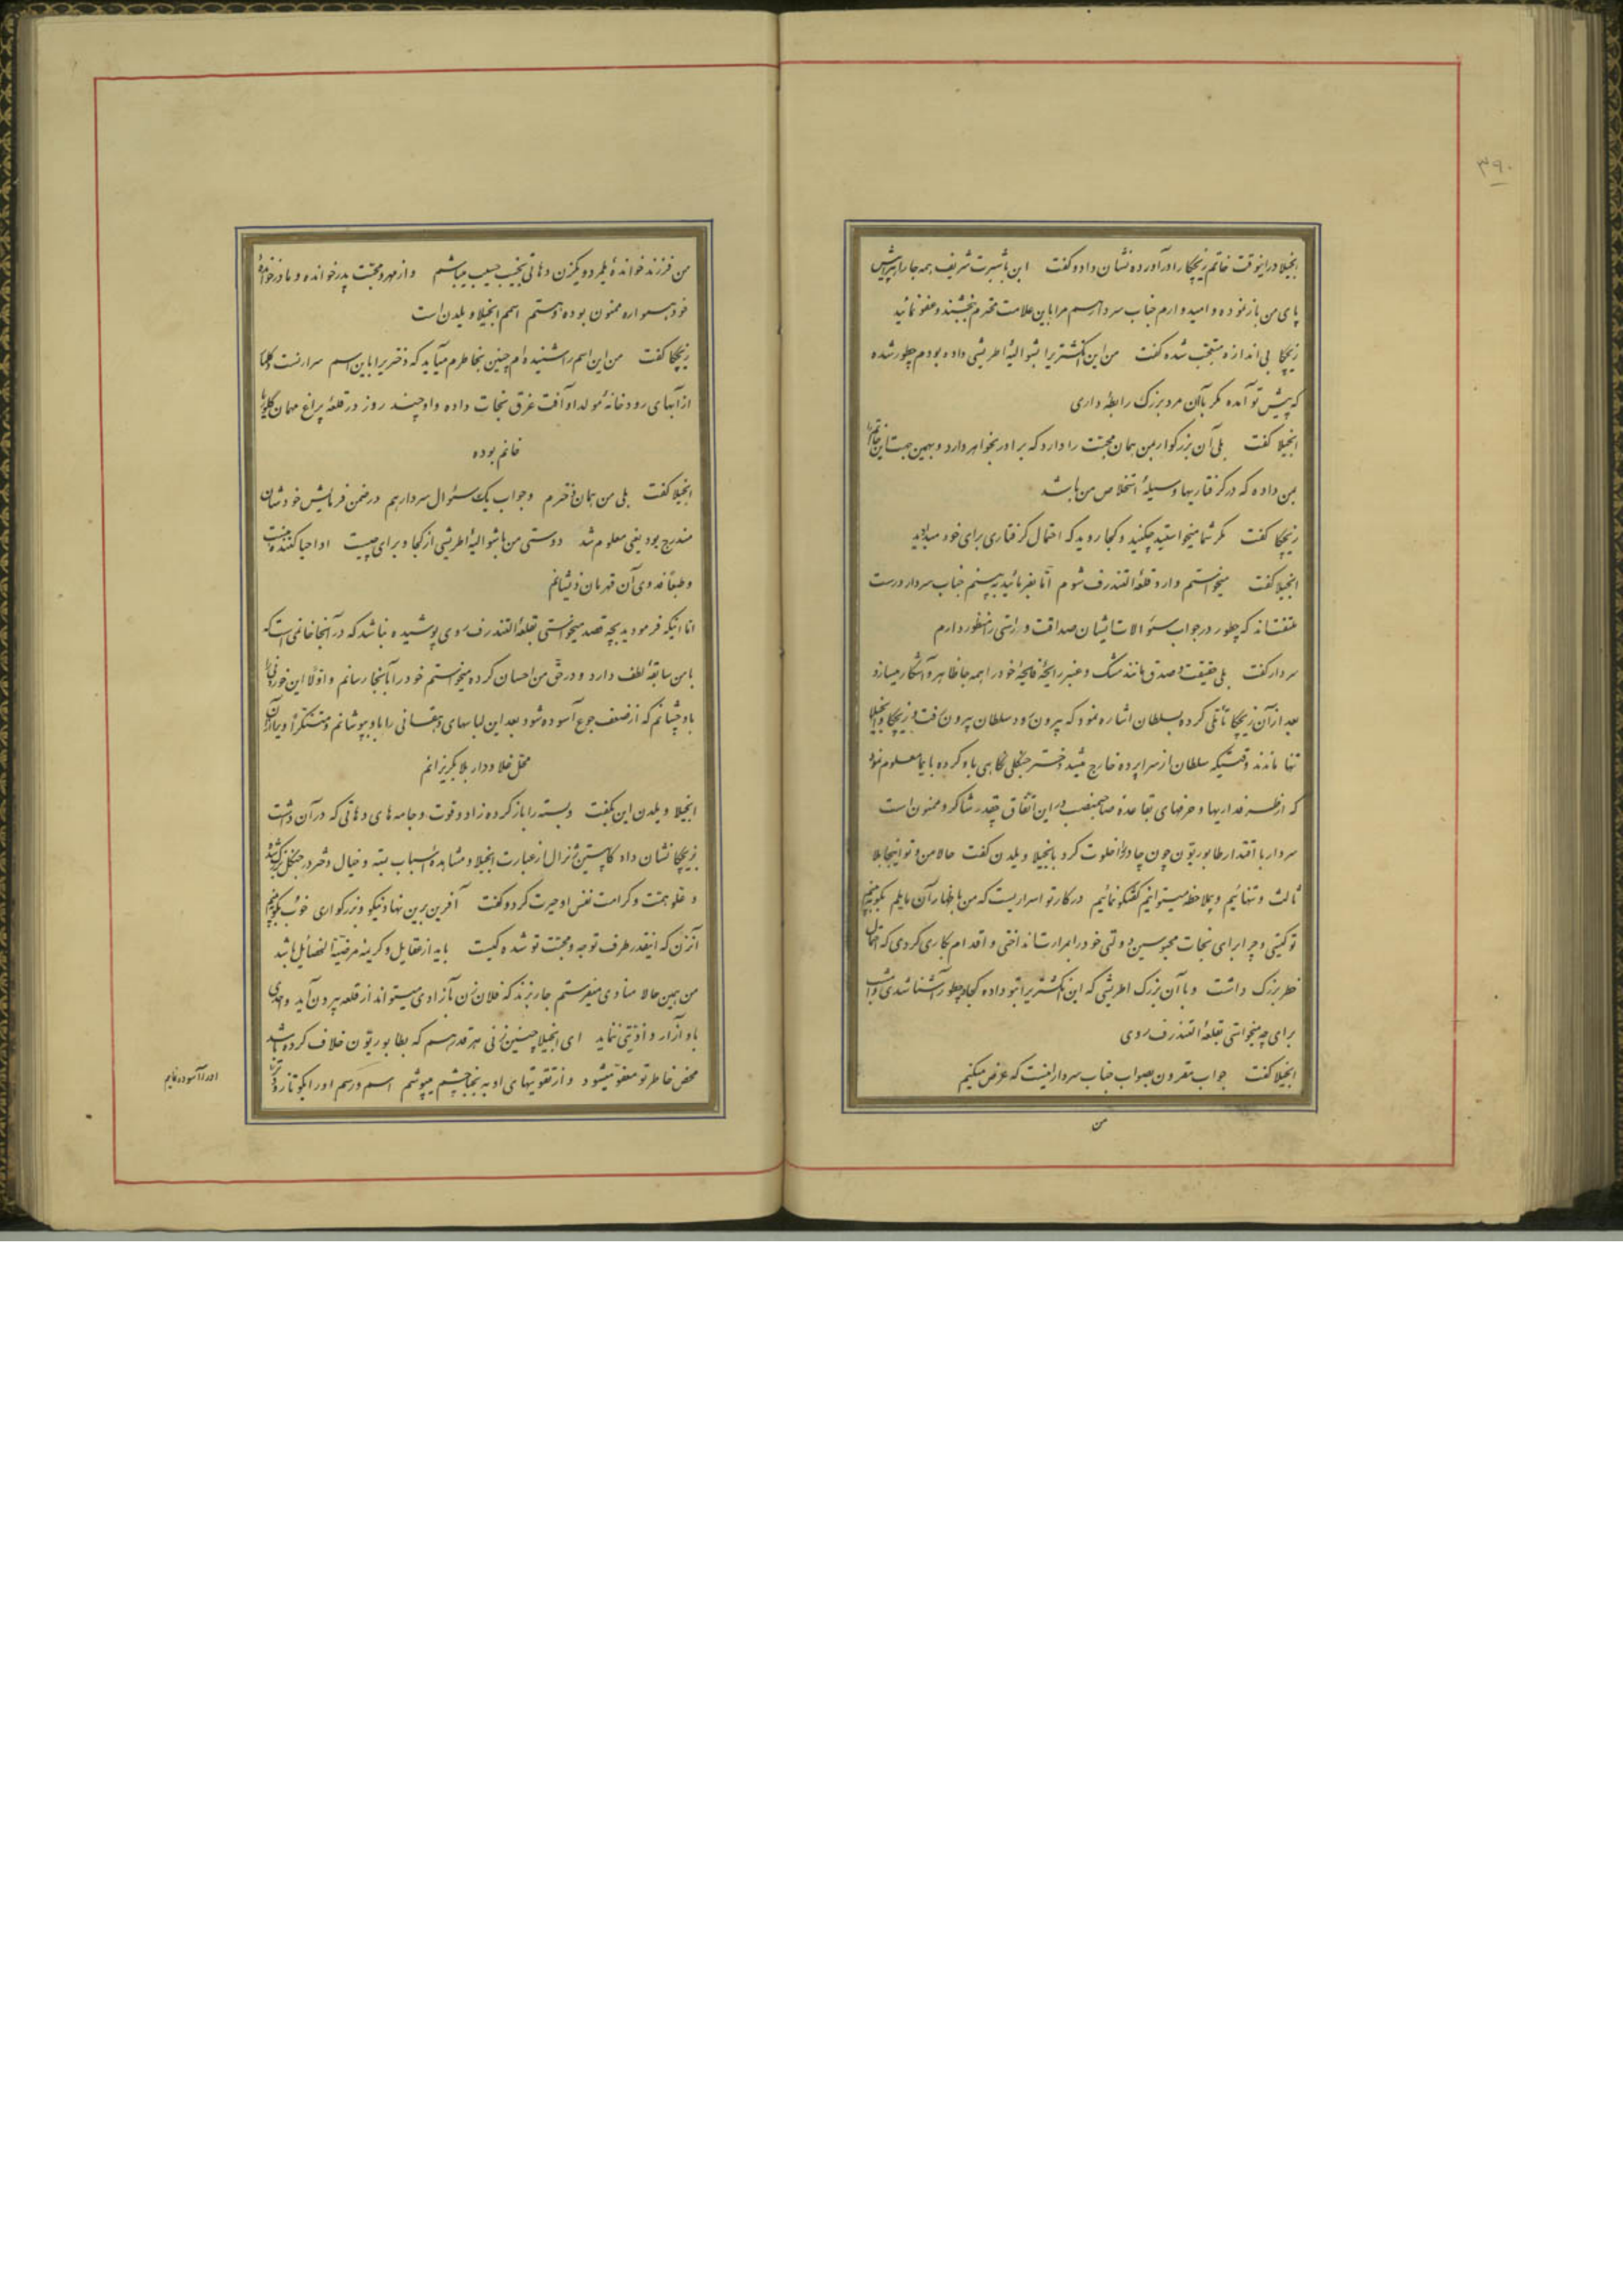 ۳۹۰
انجیلا در اینوقت خاتم ریچکا را درآورده نشان داد و گفت این باشرت شریف همه جا را پیش
پای من باز نموده و امیدوارم جناب سردار هم مرا باین علامت محترم بخشند و عفو نمائید
ریچکا بی اندازه متعجب شده گفت من این انگشتریرا بشوالیهٔ اطریشی داده بودم چطور شده
که پیش تو آمده مگر باآن مرد بزرک رابطهٔ داری
انجیلا گفت بلی آن بزرگوار بمن همان محبت را دارد که برادر بخواهر دارد و بهمین جهت این خاتم را
بمن داده که در گرفتاریها وسیلهٔ استخلاص من باشد
ریچکا گفت مگر شما میخواستید چکنید و کجا روید که احتمال گرفتاری برای خود میدادید
انجیلا گفت میخواستم وارد قلعهٔ التندرف شوم اما بفرمائید ببینم جناب سردار درست
ملتفت‌اند که چطور در جواب سئوالات ایشان صداقت و راستی را منظور دارم
سردار گفت بلی حقیقت و صدق مانند مشک و عنبر رایحهٔ فایحهٔ خود را همه جا ظاهر و آشکار میسازد
بعد از آن ریچکا تأملی کرده بسلطان اشاره نمود که بیرون رود سلطان بیرون رفت و ریچکا و انجیلا
تنها ماندند وقتیکه سلطان از سراپرده خارج میشد دختر جنگلی نگاهی باو کرده بایما معلوم نمود
که از طرفداریها و حرفهای بقاعدهٔ صاحبمنصب در این اتفاق چقدر شاکر و ممنون است
سردار با اقتدار طابور بتون چون چادر را خلوت کرد بانجیلا ویلدن گفت حالا من و تو اینجا بلا
ثالث و تنهائیم و بیملاحظه میتوانیم گفتگو نمائیم در کار تو اسراریست که من باظهار آن مایلم بگو ببینم
تو کیستی و چرا برای نجات محبوسین دولتی خود را بمرارت انداختی و اقدام بکاری کردی که احتمال
خطر بزرک داشت و با آن بزرک اطریشی که این انگشتریرا بتو داده کجا و چطور آشنا شدی و امشب
برای چه میخواستی بقلعهٔ التندرف روی
انجیلا گفت جواب مقرون بصواب جناب سردار اینست که عرض میکنم
من
من فرزند خواندهٔ یلمرد و یکزن دهاتی نجیب حسیب میباشم و از مهر و محبت پدرخوانده و مادرخواندهٔ
خود همواره ممنون بوده و هستم اسمم انجیلا ویلدن است
ریچکا گفت من این اسم را شنیده‌ام چنین بخاطرم میآید که دختریرا باین اسم سرارنست دکلما
از آبهای رودخانهٔ مولداو آفت غرق نجات داده و او چند روز در قلعهٔ پراغ مهمان
خانم بوده
انجیلا گفت بلی من همان دخترم و جواب یک سئوال سردار هم در ضمن فرمایش خودشان
مندرج بود یعنی معلوم شد دوستی من با شوالیهٔ اطریشی از کجا و برای چیست او احیا کنندهٔ منست
و طبعاً فدوی آن قهرمان ذیشانم
اما اینکه فرمودید بچه قصد میخواستی بقلعهٔ التندرف روی پوشیده نباشد که در آنجا خانمی است که
با من سابقهٔ لطف دارد و در حق من احسان کرده میخواستم خود را بآنجا رسانم و اولا این خوردنی را
باو چشانم که از ضعف جوع آسوده شود بعد این لباسهای دهقانی را باو پوشانم و متنکراً ویرا از آن
محل غلا و دار بلا بگریزانم
انجیلا ویلدن این بگفت و بسته را باز کرده زاد و قوت و جامه‌های دهاتی که در آن داشت
بریچکا نشان داد کاپیتن ژنرال از عبارت انجیلا و مشاهدهٔ اسباب بسته و خیال دختر در جنگل بزرگ شده
و علو همت و کرامت نفس او حیرت کرد و گفت آفرین برین نهاد نیکو و بزرگواری خوب بگو ببینم
آنزن که اینقدر طرف توجه و محبت تو شده کیست باید از عقایل و کریمه مرضیّة الخصایل باشد
من همین حالا منادی میفرستم جار بزند که فلان زن بآزادی میتواند از قلعه بیرون آید و احدی
باو آزار و اذیتی ننماید ای انجیلا چنین زنی هر قدر هم که بطابور بتون خلاف کرده باشد
محض خاطر تو معفو میشود و از تقویتهای او به ینجا چشم میپوشم اسم و رسم او را بگو تا زودتر
او را آسوده نمایم